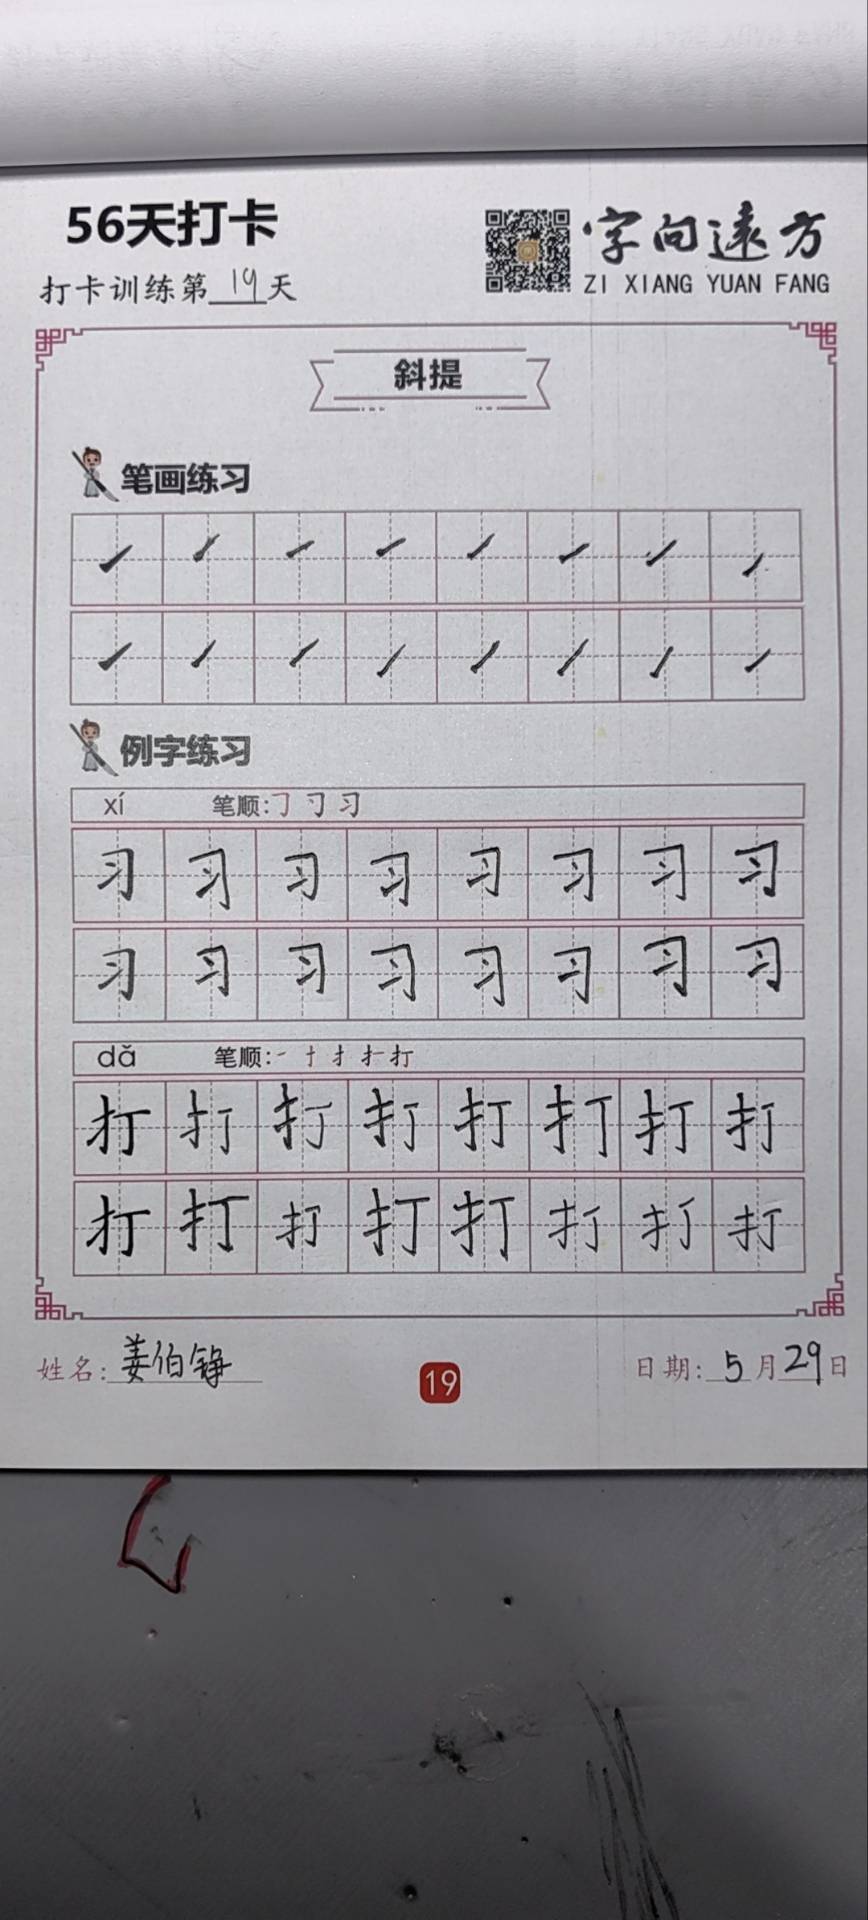 56天打卡
字向远方
打卡训练第19天
ZI XIANG YUAN FANG
斜提
笔画练习
例字练习
xí 笔顺:㇆ 习
习 习 习 习 习 习 习 习
习 习 习 习 习 习 习 习
dǎ 笔顺:一 十 扌 打
打 打 打 打 打 打 打 打
打 打 打 打 打 打 打 打
姓名:姜伯铮
19
日期:5月29日